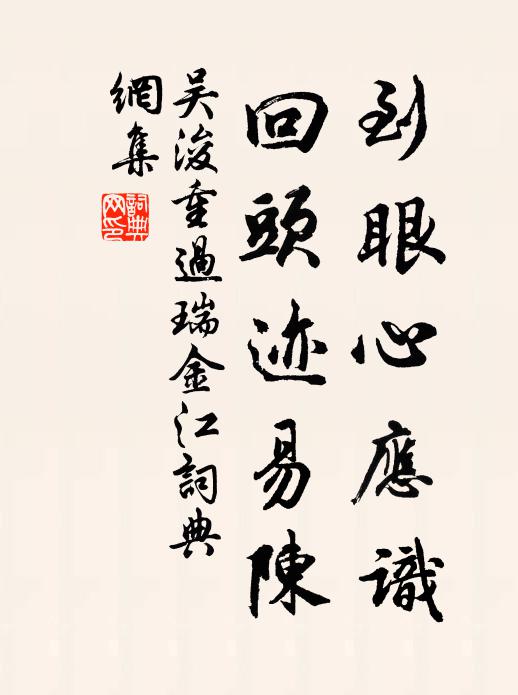 到眼心應識
回頭迹易陳
吳浚重過瑞金江詞典
網集
詞典网印